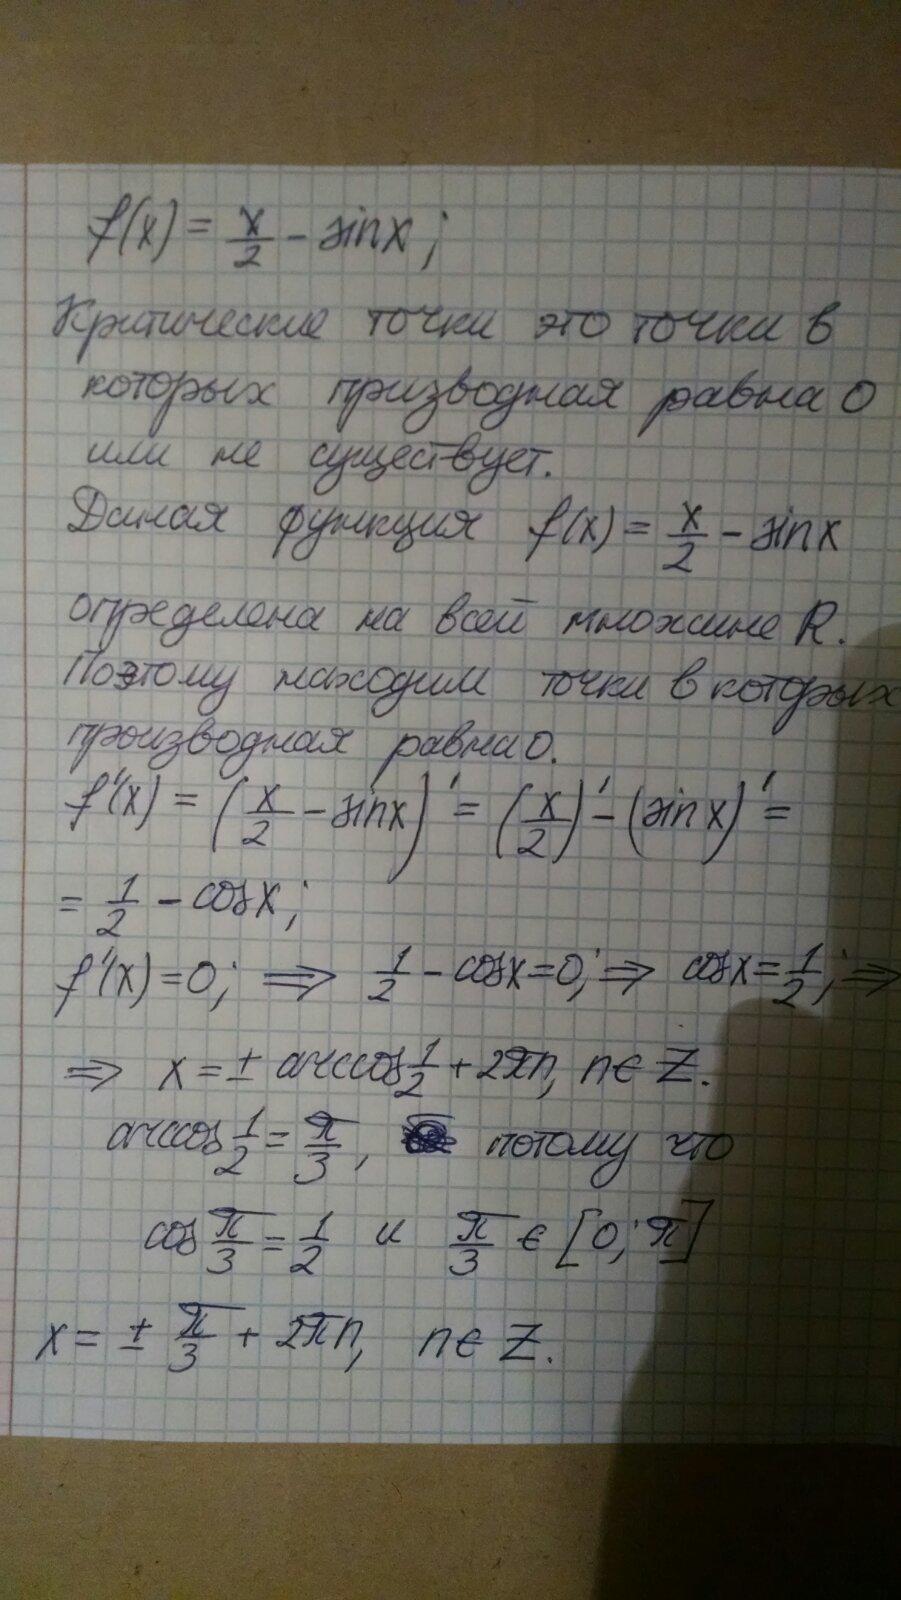 f(x) = x/2 - sin x ;
Критические точки это точки в
которых призводная равна 0
или не существует.
Даная функция f(x) = x/2 - sin x
определена на всей множине R.
Поэтому находим точки в которых
производная равна 0.
f'(x) = (x/2 - sin x)' = (x/2)' - (sin x)' =
= 1/2 - cos x ;
f'(x) = 0; ⇒ 1/2 - cos x = 0; ⇒ cos x = 1/2; ⇒
⇒ x = ± arccos 1/2 + 2πn, n ∈ Z.
arccos 1/2 = π/3, потому что
cos π/3 = 1/2 и π/3 ∈ [0; π]
x = ± π/3 + 2πn, n ∈ Z.